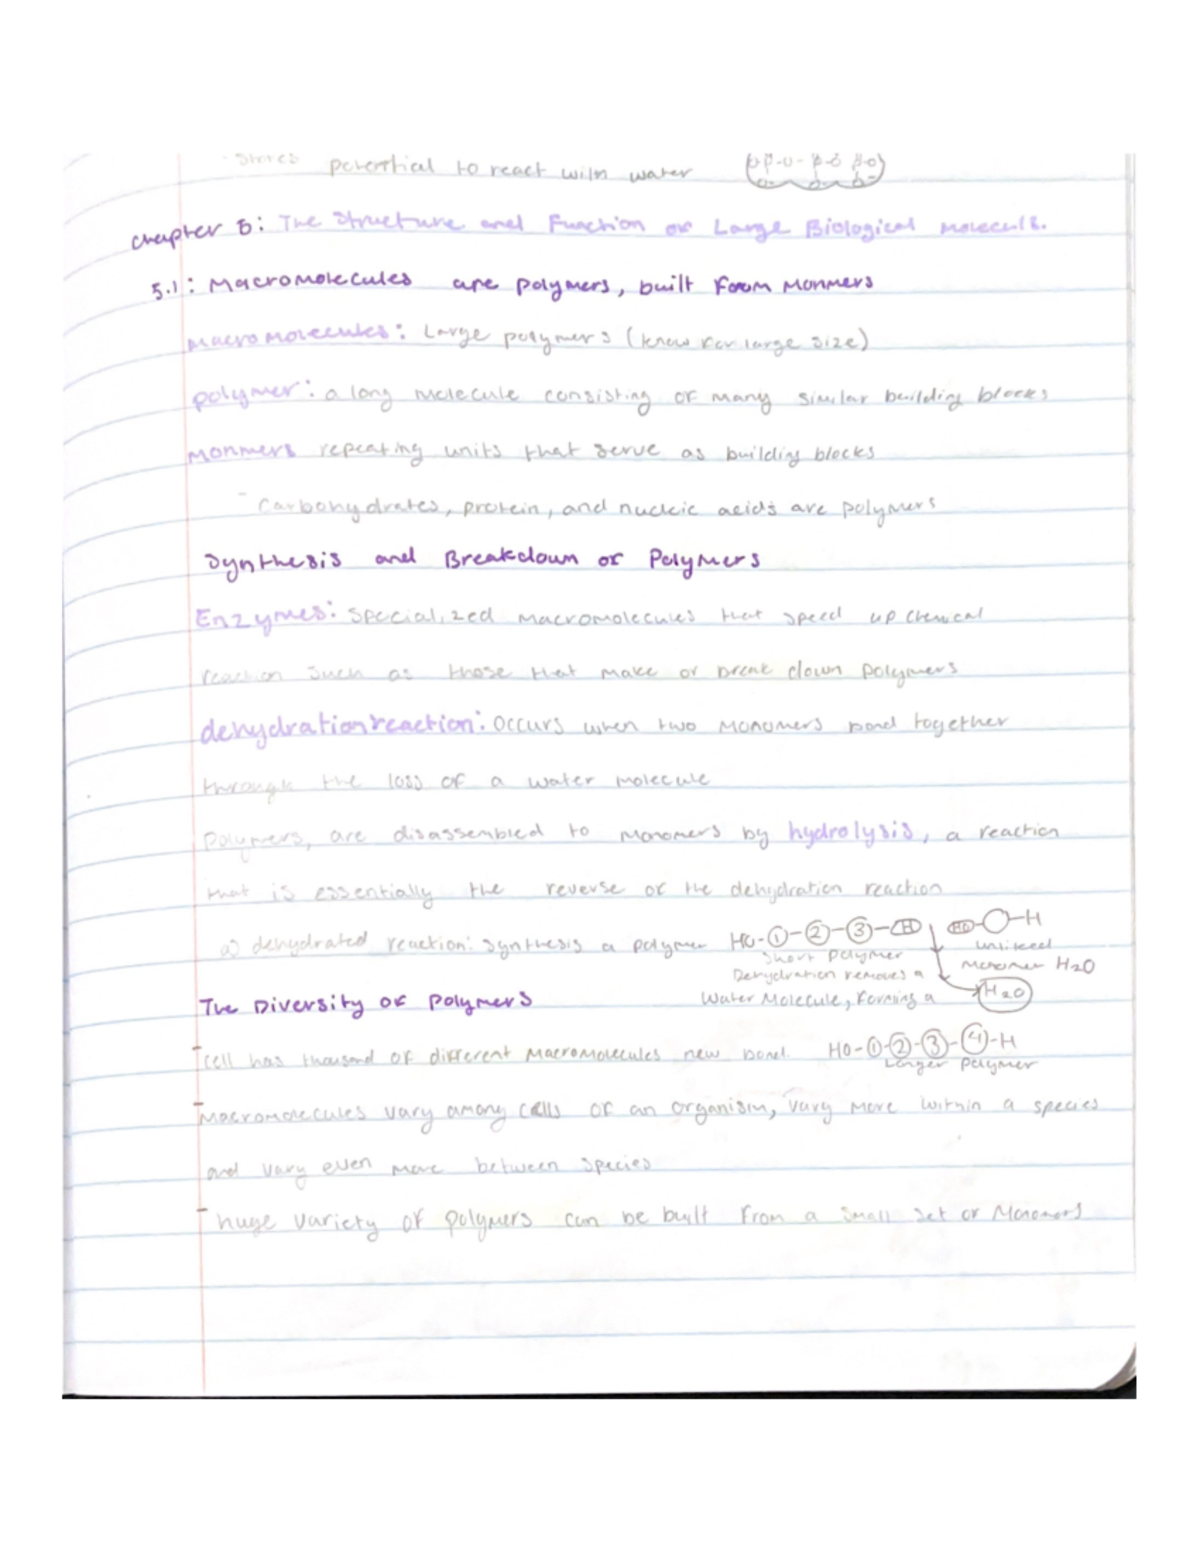 Stores potential to react with water
Chapter 5: The Structure and Function of Large Biological Molecules.
5.1: Macromolecules are polymers, built from Monmers
Macromolecules: Large polymers (know for large size)
polymer: a long molecule consisting of many similar building blocks
Monmers repeating units that serve as building blocks
- Carbohydrates, protein, and nucleic acids are polymers
Synthesis and Breakdown of Polymers
Enzymes: Specialized macromolecules that speed up chemical
reaction such as those that make or break down polymers
dehydration reaction: Occurs when two monomers bond together
through the loss of a water molecule
Polymers, are disassembled to monomers by hydrolysis, a reaction
that is essentially the reverse of the dehydration reaction
a) dehydrated reaction: Synthesis a polymer HO-1-2-3-H HO-O-H
Short polymer unlinked
Dehydration removes a monomer H2O
Water Molecule, Forming a H2O
The Diversity of Polymers
- Cell has thousand of different Macromolecules new bond. HO-1-2-3-4-H
Longer Polymer
- Macromolecules vary among cells of an organism, vary more within a species
and vary even more between species
- huge variety of polymers can be built from a small set of Monomers